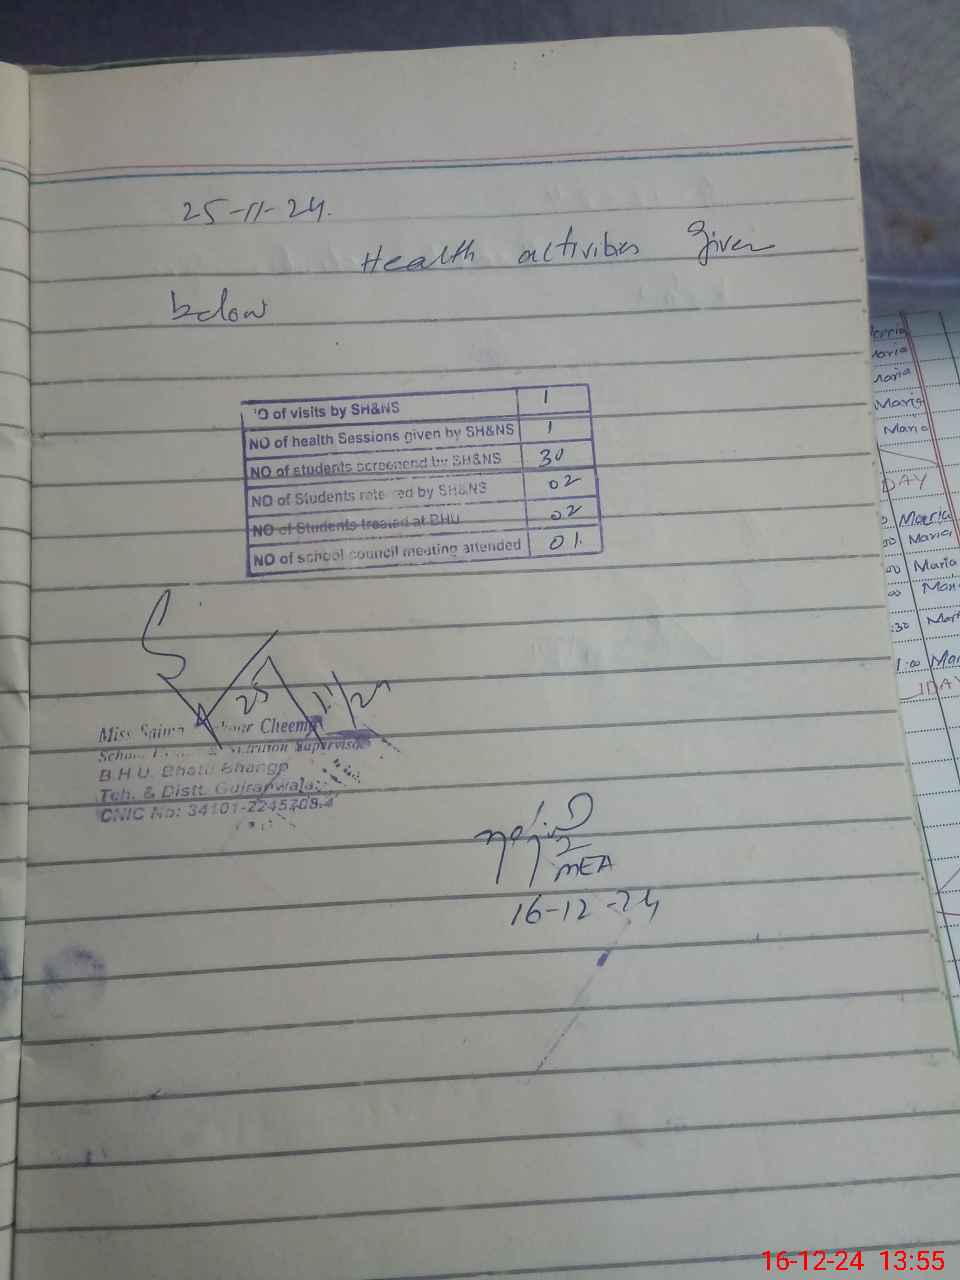 25-11-24.
Health activities given
below
NO of visits by SH&NS 1
NO of health Sessions given by SH&NS 1
NO of students screenend by SH&NS 30
NO of Students refered by SH&NS 02
NO of Students treated at BHU 02
NO of school council meeting attended 01
25/11/24
Miss Saima Cheema
School & Nutrition Supervisor
B.H.U. Bhangp
Teh. & Distt. Gujranwala
CNIC No: 34101-2245208-4
MEA
16-12-24
Maria
Maria
Maria
Maria
DAY
Maria
Maria
Maria
:30
1:00
DAY
16-12-24 13:55